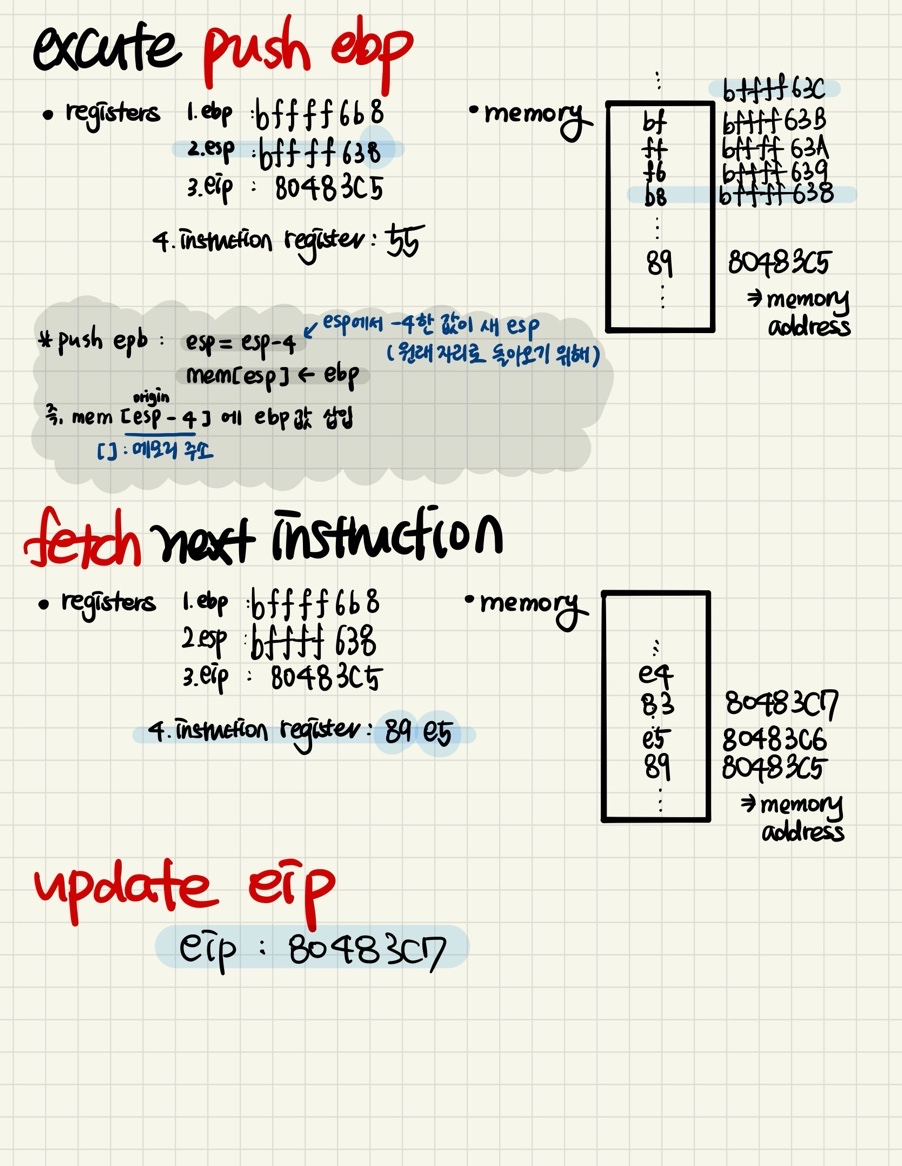 excute push ebp
• registers 1.ebp : bffff6b8
2.esp : bffff638
3.eip : 80483C5
4. instruction register : 55
• memory
⋮ bffff63C
bf bffff63B
ff bffff63A
f6 bffff639
b8 bffff638
⋮
89 80483C5
⋮ ⇒ memory
address
* push epb : esp = esp-4 ↙ esp에서 -4한 값이 새 esp
(원래 자리로 돌아오기 위해)
mem[esp] ← ebp
origin
즉, mem [esp - 4] 에 ebp값 삽입
[] : 메모리 주소
fetch next instruction
• registers 1.ebp : bffff6b8
2.esp : bffff638
3.eip : 80483C5
4. instruction register : 89 e5
• memory
⋮
e4
83 80483C7
e5 80483C6
89 80483C5
⋮ ⇒ memory
address
update eip
eip : 80483C7